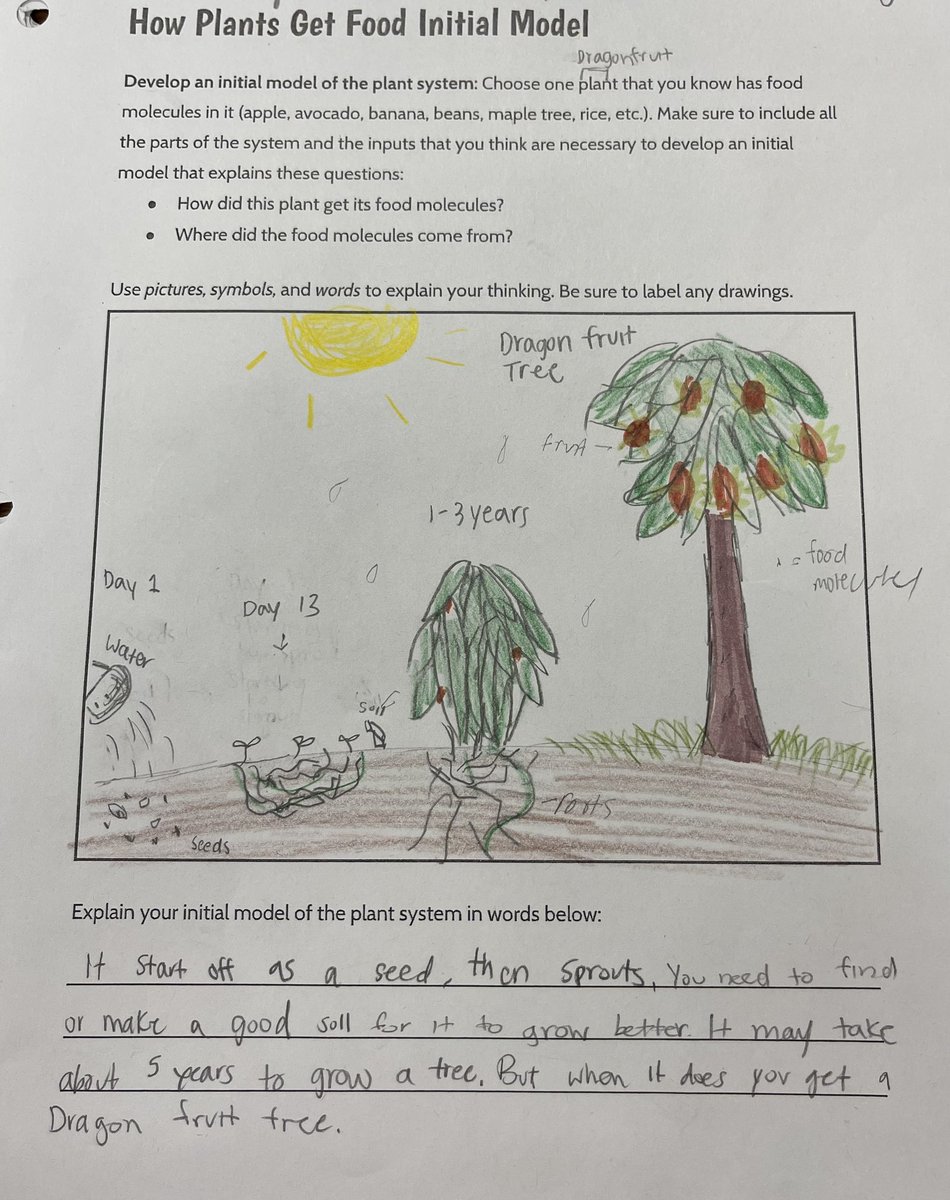 How Plants Get Food Initial Model
Dragonfruit
Develop an initial model of the plant system: Choose one plant that you know has food
molecules in it (apple, avocado, banana, beans, maple tree, rice, etc.). Make sure to include all
the parts of the system and the inputs that you think are necessary to develop an initial
model that explains these questions:
• How did this plant get its food molecules?
• Where did the food molecules come from?
Use pictures, symbols, and words to explain your thinking. Be sure to label any drawings.
Dragon fruit
Tree
fruit
1-3 years
= food
molecules
Day 1
Day 13
Water
soil
roots
seeds
Explain your initial model of the plant system in words below:
It start off as a seed, then sprouts, You need to find
or make a good soil for it to grow better. It may take
about 5 years to grow a tree. But when it does you get a
Dragon fruit tree.